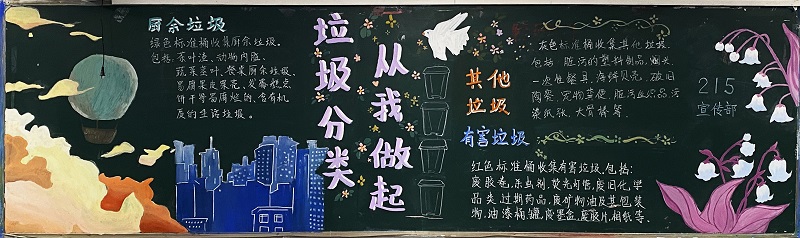 厨余垃圾
绿色标准桶收集厨余垃圾。
包括:茶叶渣、动物内脏、
蔬菜菜叶、餐桌厨余垃圾、
饼干等易腐烂的、含有机
质的生活垃圾。
垃圾分类
从我做起
其他
垃圾
灰色标准桶收集其他垃圾.
包括:脏污的塑料制品,烟头、
一次性餐具,海绵贝壳,破旧
陶瓷、宠物粪便、脏污纺织品污
染纸张、大骨棒等.
有害垃圾
红色标准桶收集有害垃圾.包括:
废胶卷、杀虫剂、荧光灯管、废旧化学
品类、过期药品、废矿物油及其包装
物、油漆桶罐、废墨盒、废胶片、相纸等、
215
宣传部